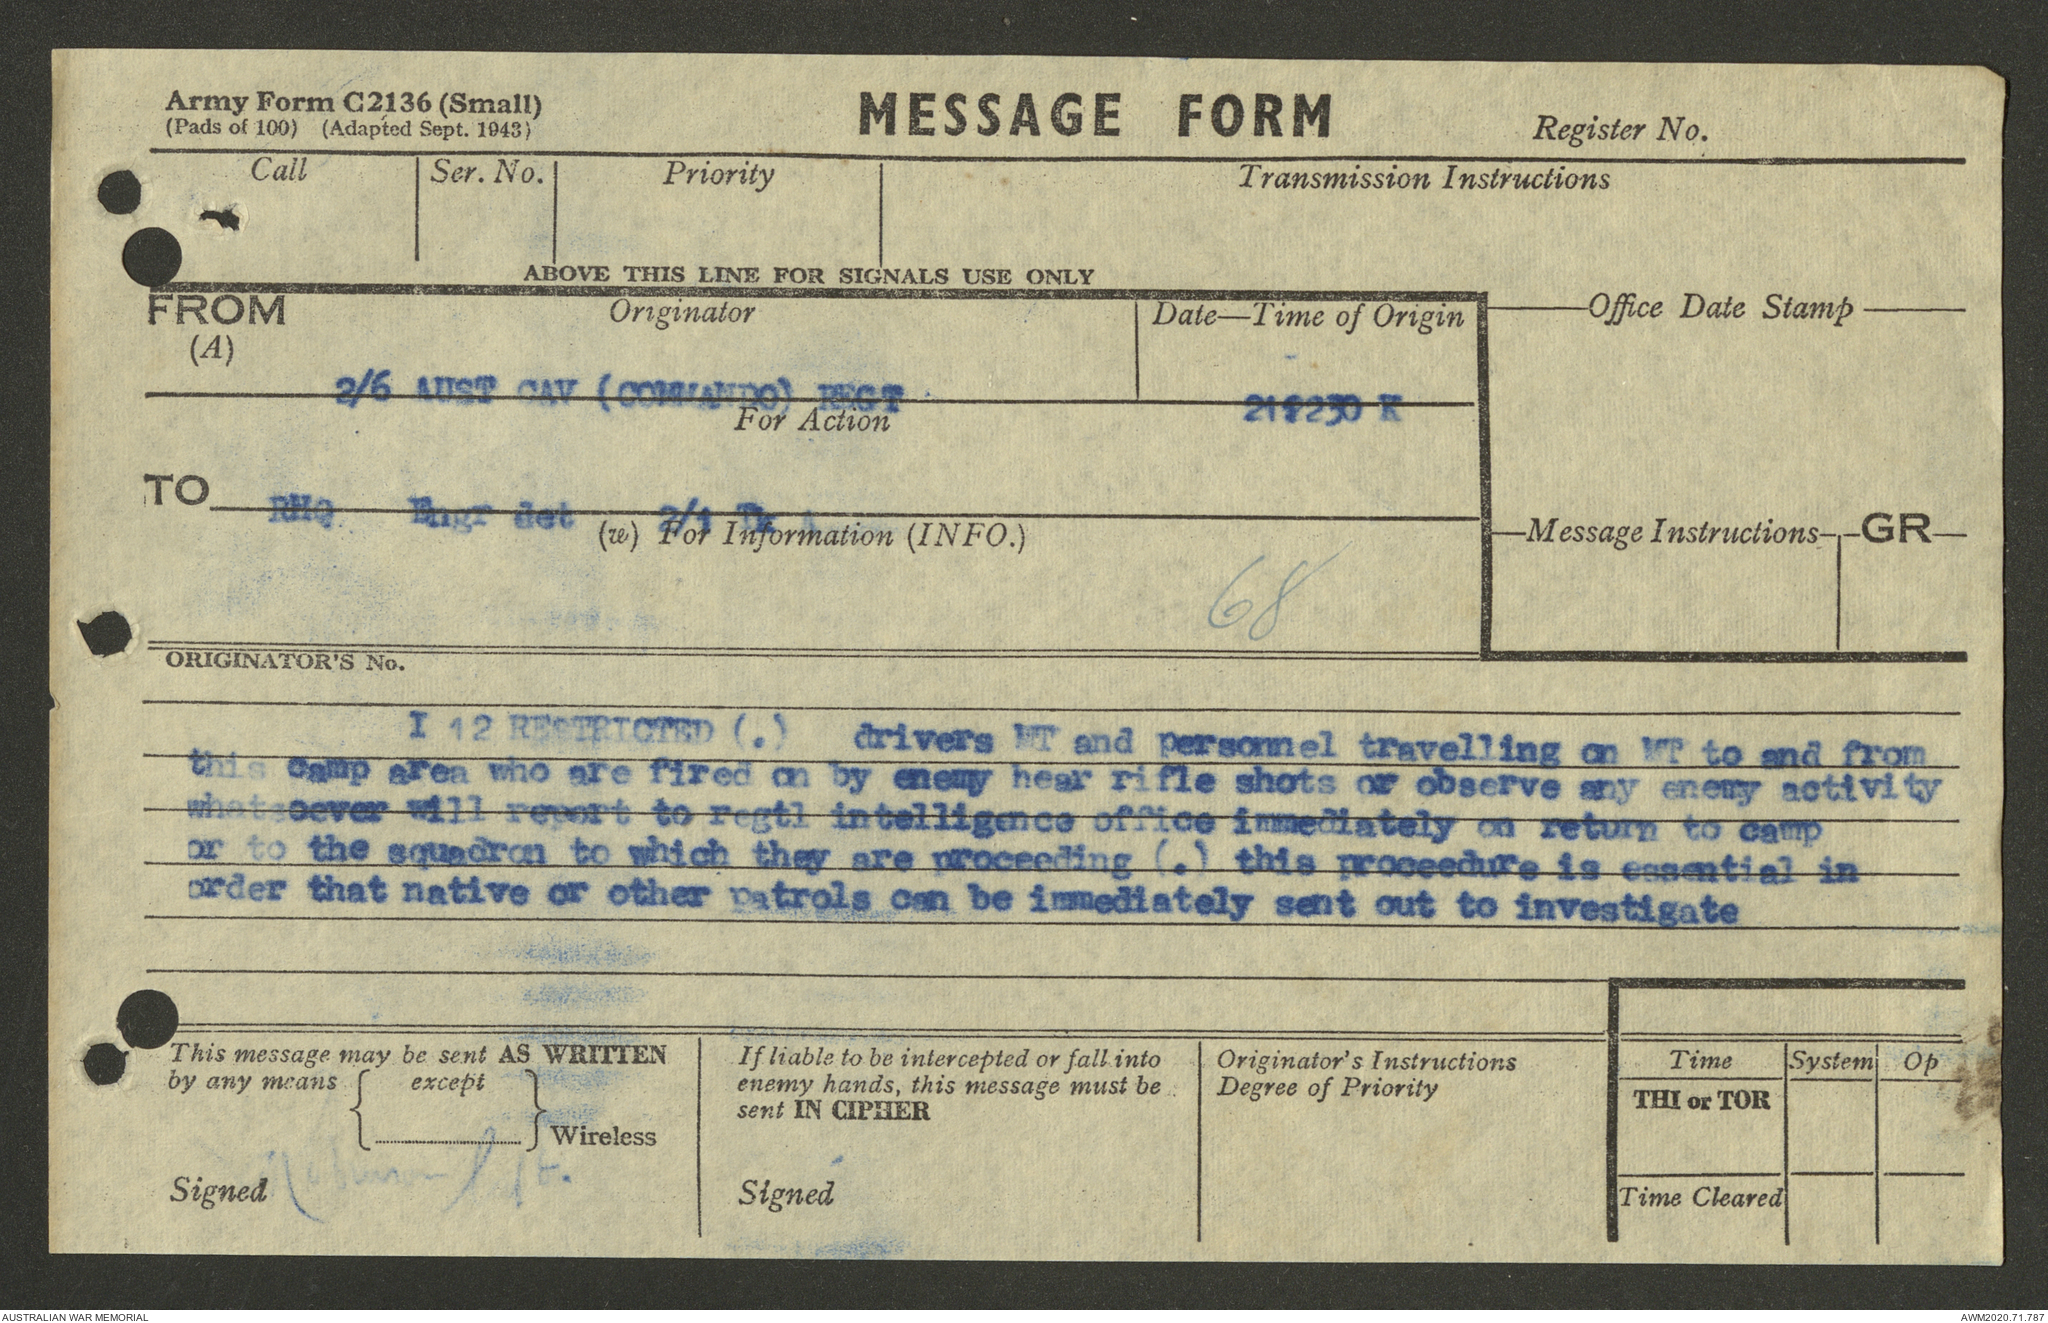 Army Form C2136 (Small)
(Pads of 100) (Adapted Sept. 1943)
MESSAGE FORM
Register No.
Call
Ser. No.
Priority
Transmission Instructions
ABOVE THIS LINE FOR SIGNALS USE ONLY
FROM
(A)
Originator
Date—Time of Origin
Office Date Stamp
2/6 AUST CAV (COMMANDO) REGT
230 K
For Action
TO
RHQ Engr det 2/1
(w) For Information (INFO.)
Message Instructions
GR
68
ORIGINATOR'S No.
I 12 RESTRICTED (.) drivers MT and personnel travelling on MT to and from
this camp area who are fired on by enemy hear rifle shots or observe any enemy activity
whatsoever will report to regtl intelligence office immediately on return to camp
or to the squadron to which they are proceeding (.) this proceedure is essential in
order that native or other patrols can be immediately sent out to investigate
This message may be sent AS WRITTEN
by any means { except } Wireless
Signed
Lt.
If liable to be intercepted or fall into
enemy hands, this message must be
sent IN CIPHER
Signed
Originator's Instructions
Degree of Priority
Time
System
Op
THI or TOR
Time Cleared
AUSTRALIAN WAR MEMORIAL
AWM2020.71.787